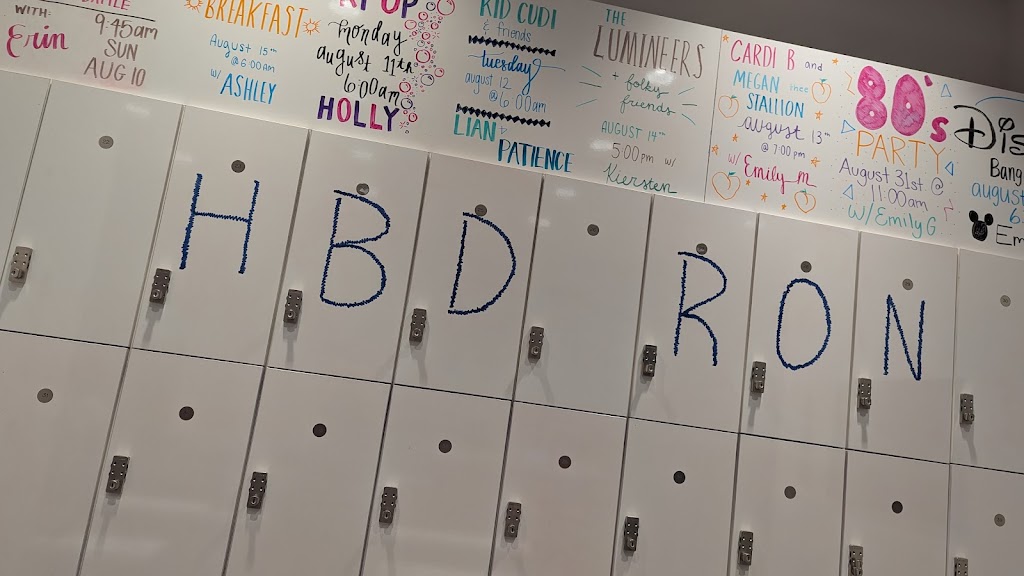 WITH:
Erin
9:45am
SUN
AUG 10
BREAKFAST
August 15th
@ 6:00am
w/ ASHLEY
monday
august 11th
6:00am
HOLLY
KID CUDI
& friends
tuesday
august 12
@ 6:00am
LIAN + PATIENCE
THE
LUMINEERS
+ folky
friends
AUGUST 14th
5:00pm w/
Kiersten
CARDI B and
MEGAN thee
STALLION
august 13th
@ 7:00pm
w/ Emily m
80's
PARTY
August 31st @
11:00am
w/ Emily G.
Dis
Bang
august
6:
Em
HBD RON